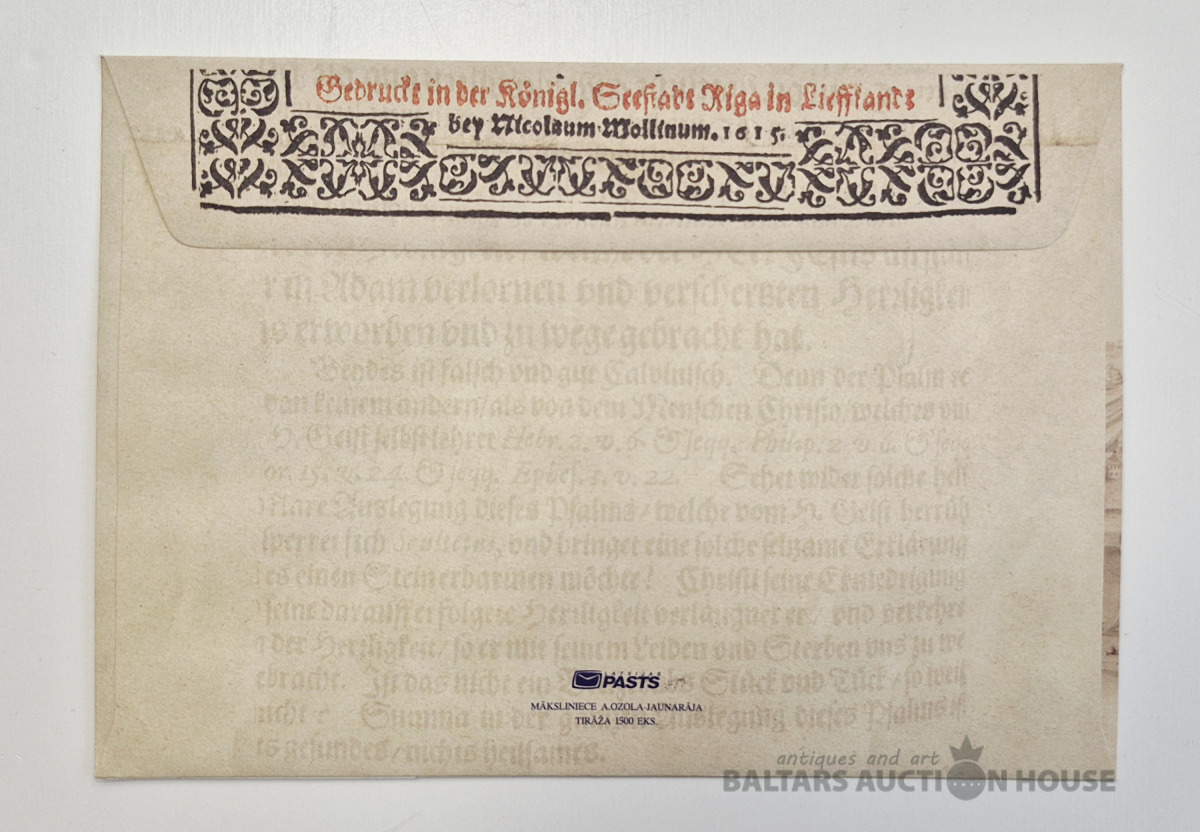 Gedruckt in der Königl. Seestadt Riga in Lieffland:
bey Nicolaum Mollinum. 1615.
r in Adam verlornen vnd verschertzten Herrligkeit
is erworben vnd zu wege gebracht hat.
Beydes ist falsch vnd gut Calvinisch. Denn der Psalm re
von keinem andern/als von dem Menschen Christo/welches vns
H. Geist selbst lehret Hebr. 2. v. 6. & seqq. Philip. 2. v. 6. & seqq
or. 15. v. 24. & seqq. Ephes. 1. v. 22. Sehet wider solche hell
klare Auslegung dieses Psalms/welche vom H. Geist herrüh
sperret sich Scultetus, vnd bringet eine solche seltzame Erklärung
es einen Stein erbarmen möchte! Christi seine Erniedrigung
seine darauff erfolgete Herrligkeit verläugnet er/ vnd verkehret
der Herrligkeit/so er mit seinem Leiden vnd Sterben vns zu we
ebracht. Ist das nicht ein Stück vnd Tück/so weiß
PASTS
MĀKSLINIECE A.OZOLA-JAUNARĀJA
TIRĀŽA 1500 EKS.
nicht: Summa in der Auslegung dieses Psalms ist
ts gesundes/nichts heilsames.
antiques and art
BALTARS AUCTION HOUSE